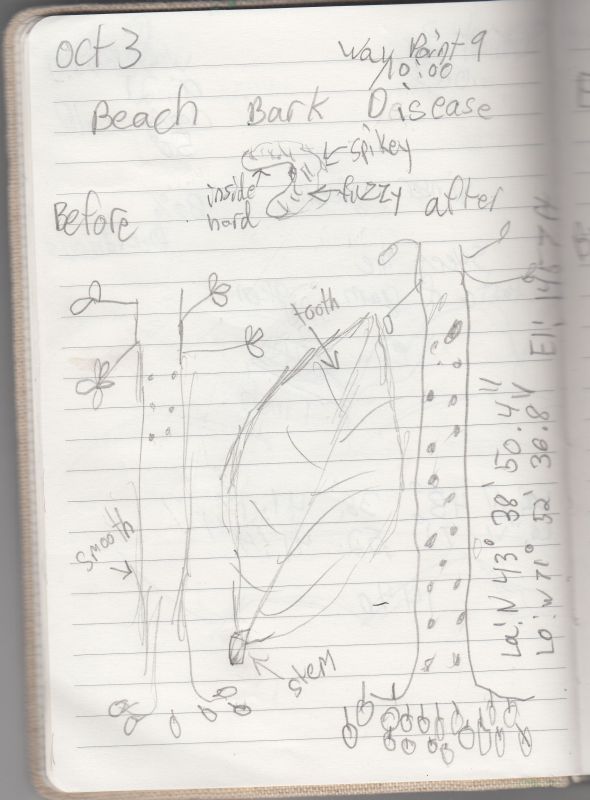 oct 3
Way Point 9
10:00
Beach Bark Disease
spikey
inside
hard
fuzzy
Before
after
tooth
smooth
stem
La: N 43° 38' 50.4"
Lo: W 71° 52' 36.8"